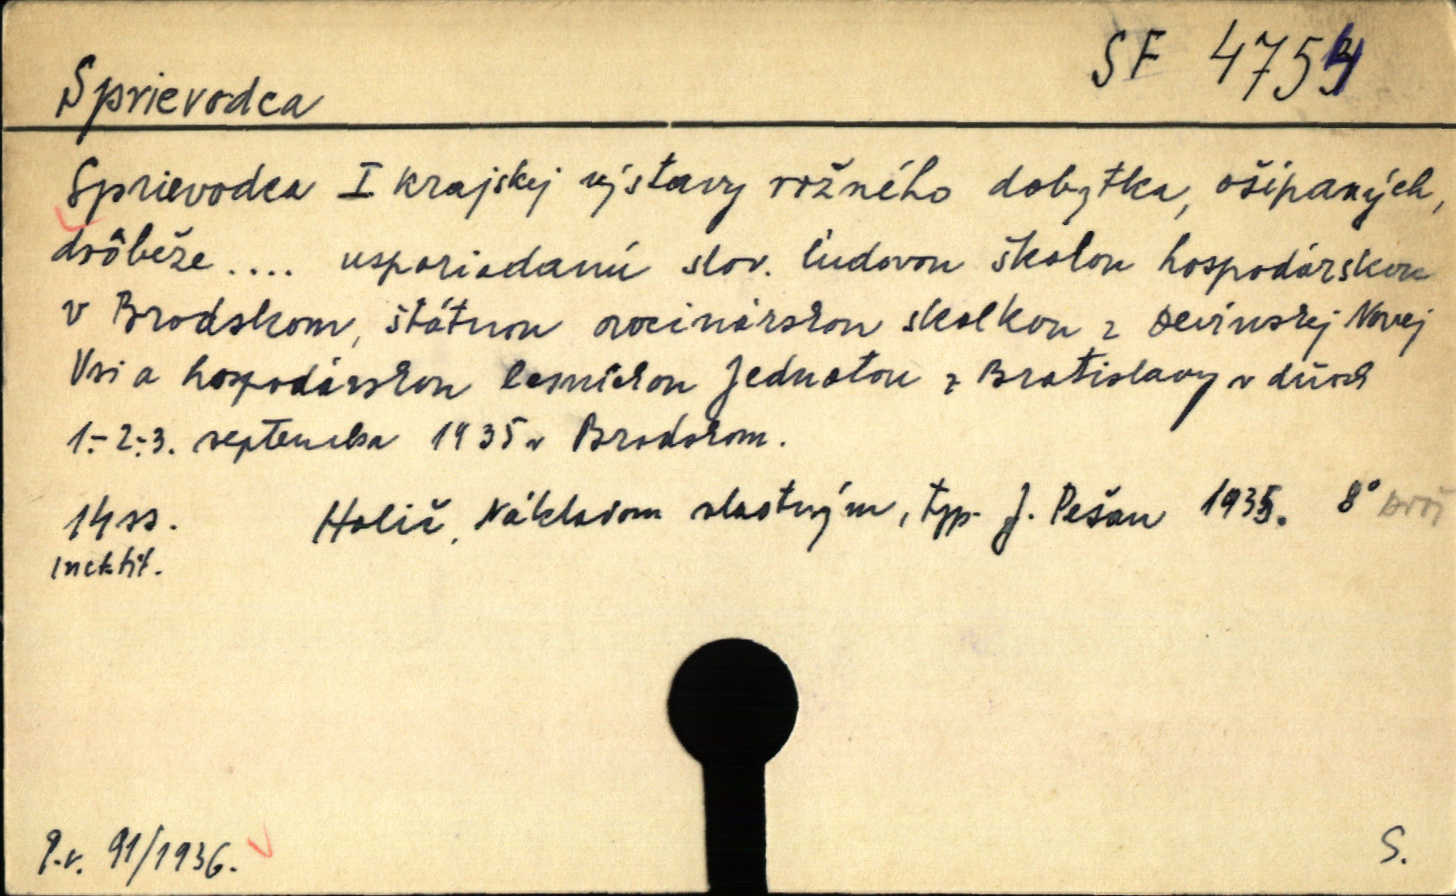 SF 4754
Sprievodca
Sprievodca I krajskej výstavy rožného dobytka, ošípaných,
drôbeže .... usporiadanú slov. ľudovou školou hospodárskou
v Brodskom, štátnou ovocinárskou školkou z Devínskej Novej
Vsi a hospodárskou lesníckou Jednotou z Bratislavy v dňoch
1.-2.-3. septembra 1935 v Brodskom.
14 ss. Holič, Nákladom vlastným, typ. J. Pešan 1935. 8° brož
inektit.
P.v. 91/1936.
S.